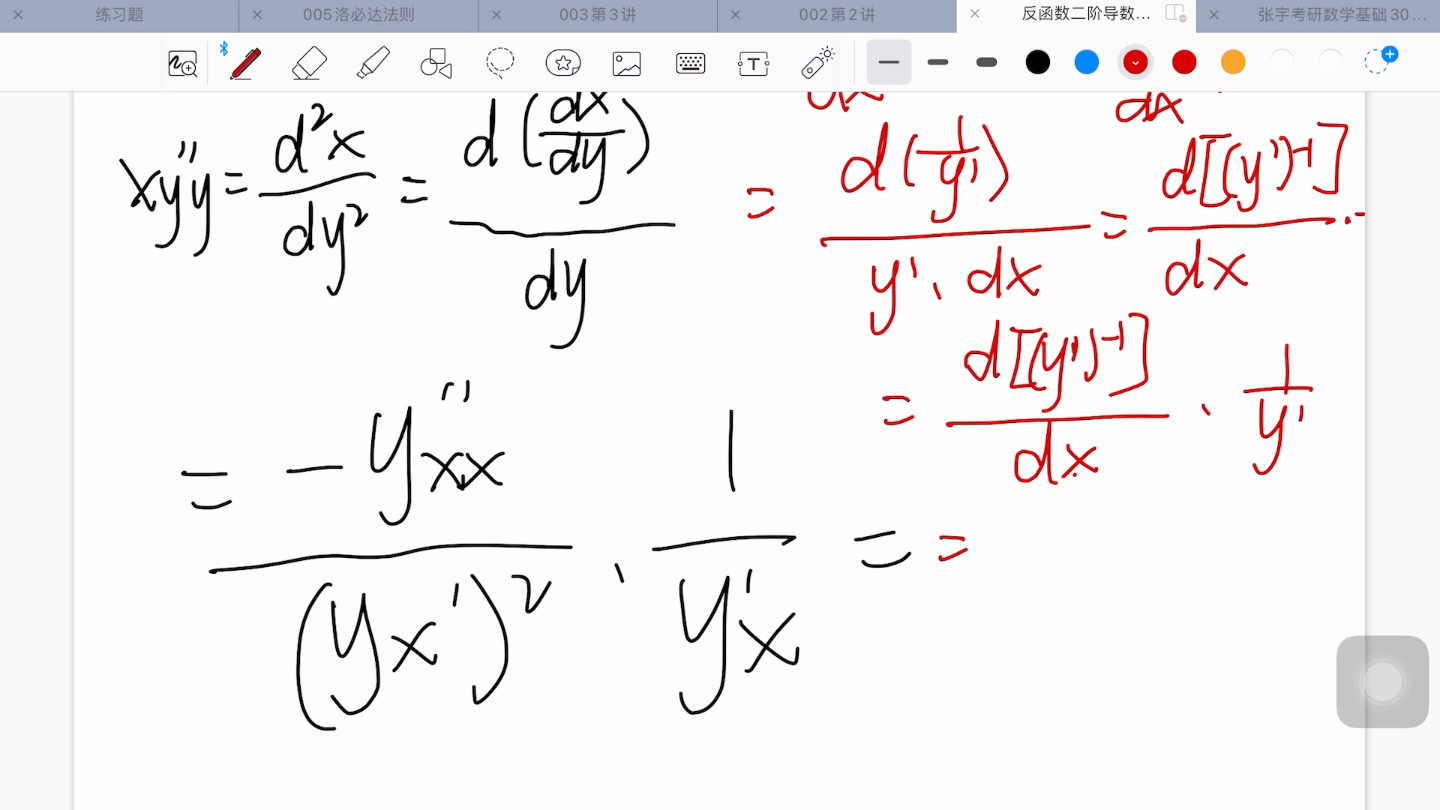 练习题 005洛必达法则 003第3讲 002第2讲 反函数二阶导数... 张宇考研数学基础30...
dx dx
x''yy = d²x/dy² = d(dx/dy)/dy = d(1/y')/(y'·dx) = d[(y')⁻¹]/dx ·
= d[(y')⁻¹]/dx · 1/y'
= -y''xx/(yx')² · 1/y'x = =